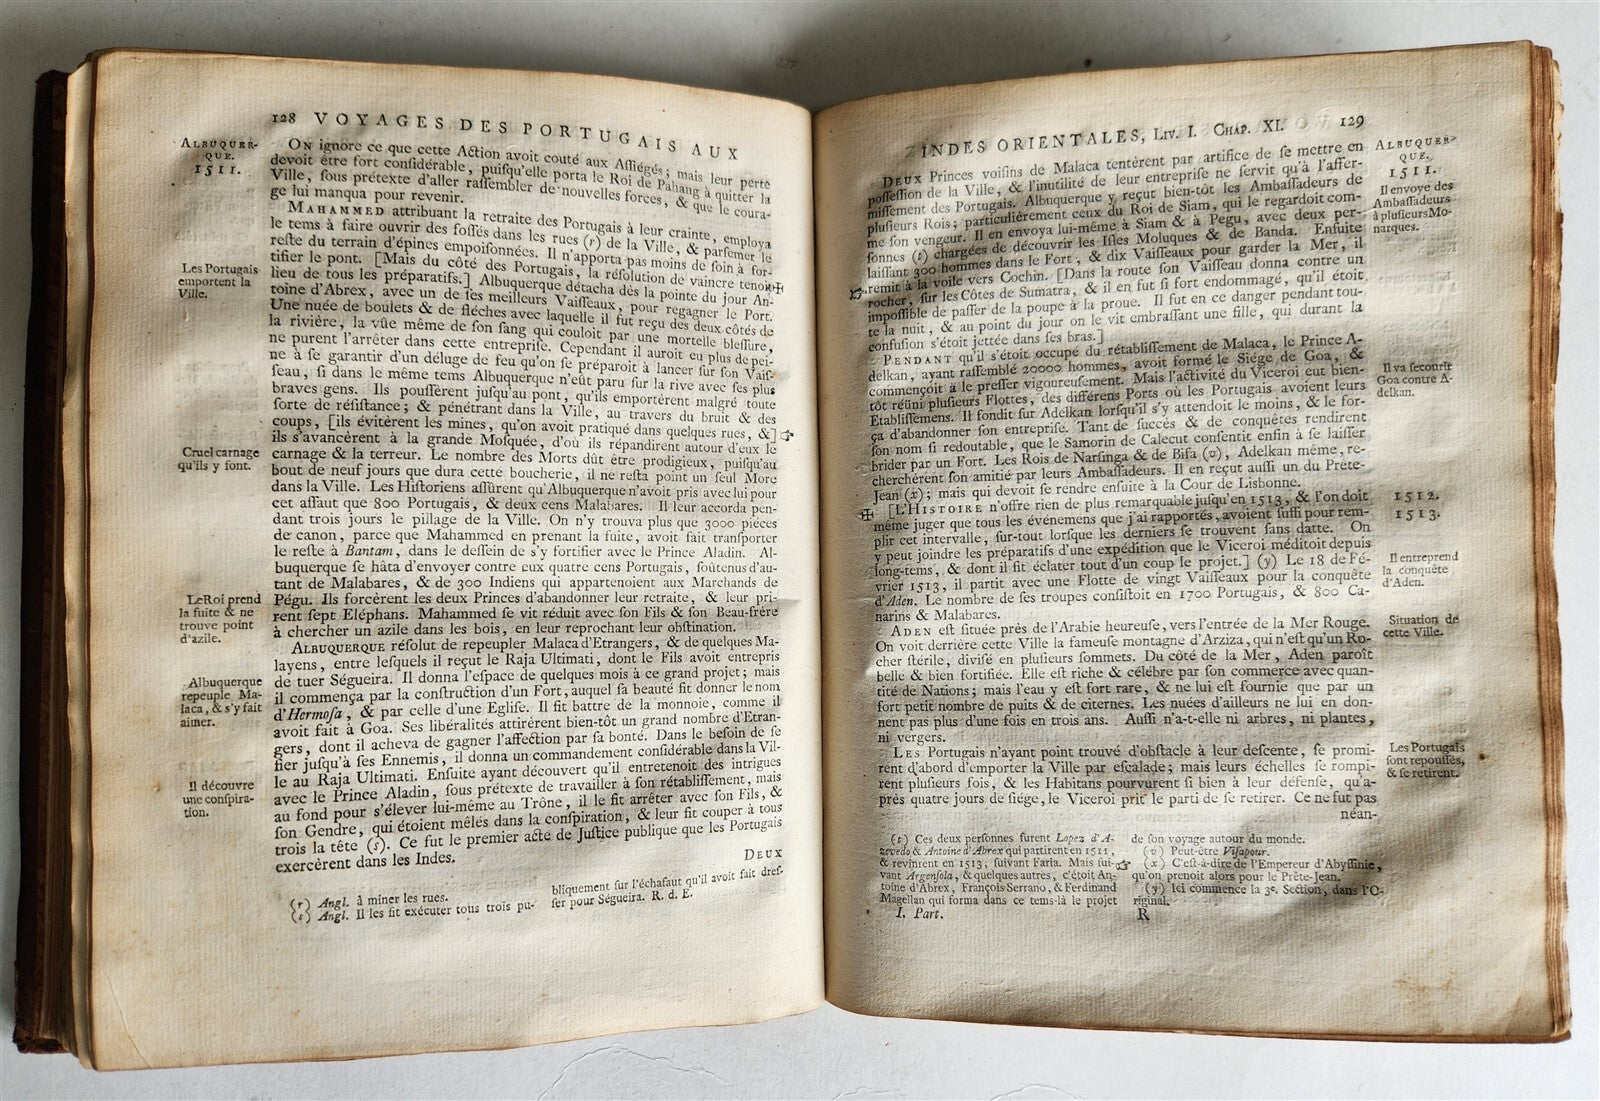 128 VOYAGES DES PORTUGAIS AUX
ALBUQUER-
QUE.
1511.
ON ignore ce que cette Action avoit couté aux Assiégés; mais leur perte
devoit être fort considérable, puisqu'elle porta le Roi de Pahang à quitter la
Ville, sous prétexte d'aller rassembler de nouvelles forces, & que le coura-
ge lui manqua pour revenir.
MAHAMMED attribuant la retraite des Portugais à leur crainte, employa
le tems à faire ouvrir des fossés dans les rues (r) de la Ville, & parsemer le
reste du terrain d'épines empoisonnées. Il n'apporta pas moins de soin à for-
tifier le pont. [Mais du côté des Portugais, la résolution de vaincre tenoit
Les Portugais
emportent la
Ville.
lieu de tous les préparatifs.] Albuquerque détacha dès la pointe du jour An-
toine d'Abrex, avec un de ses meilleurs Vaisseaux, pour regagner le Port.
Une nuée de boulets & de fléches avec laquelle il fut reçu des deux côtés de
la rivière, la vûe même de son sang qui couloit par une mortelle blessure,
ne purent l'arrêter dans cette entreprise. Cependant il auroit eu plus de pei-
ne à se garantir d'un déluge de feu qu'on se préparoit à lancer sur son Vais-
seau, si dans le même tems Albuquerque n'eût paru sur la rive avec ses plus
braves gens. Ils poussèrent jusqu'au pont, qu'ils emportèrent malgré toute
sorte de résistance; & pénétrant dans la Ville, au travers du bruit & des
coups, [ils évitèrent les mines, qu'on avoit pratiqué dans quelques rues, &]
ils s'avancèrent à la grande Mosquée, d'où ils répandirent autour d'eux le
Cruel carnage
qu'ils y font.
carnage & la terreur. Le nombre des Morts dût être prodigieux, puisqu'au
bout de neuf jours que dura cette boucherie, il ne resta point un seul More
dans la Ville. Les Historiens assûrent qu'Albuquerque n'avoit pris avec lui pour
cet assaut que 800 Portugais, & deux cens Malabares. Il leur accorda pen-
dant trois jours le pillage de la Ville. On n'y trouva plus que 3000 piéces
de canon, parce que Mahammed en prenant la fuite, avoit fait transporter
le reste à Bantam, dans le dessein de s'y fortifier avec le Prince Aladin. Al-
buquerque se hâta d'envoyer contre eux quatre cens Portugais, soûtenus d'au-
tant de Malabares, & de 300 Indiens qui appartenoient aux Marchands de
Le Roi prend
la fuite & ne
trouve point
d'azile.
Pégu. Ils forcèrent les deux Princes d'abandonner leur retraite, & leur pri-
rent sept Eléphans. Mahammed se vit réduit avec son Fils & son Beau-frère
à chercher un azile dans les bois, en leur reprochant leur obstination.
ALBUQUERQUE résolut de repeupler Malaca d'Etrangers, & de quelques Ma-
layens, entre lesquels il reçut le Raja Ultimati, dont le Fils avoit entrepris
Albuquerque
repeuple Ma-
laca, & s'y fait
aimer.
de tuer Ségueira. Il donna l'espace de quelques mois à ce grand projet; mais
il commença par la construction d'un Fort, auquel sa beauté fit donner le nom
d'Hermosa, & par celle d'une Eglise. Il fit battre de la monnoie, comme il
avoit fait à Goa. Ses libéralités attirèrent bien-tôt un grand nombre d'Etran-
gers, dont il acheva de gagner l'affection par sa bonté. Dans le besoin de se
fier jusqu'à ses Ennemis, il donna un commandement considérable dans la Vil-
Il découvre
une conspira-
tion.
le au Raja Ultimati. Ensuite ayant découvert qu'il entretenoit des intrigues
avec le Prince Aladin, sous prétexte de travailler à son rétablissement, mais
au fond pour s'élever lui-même au Trône, il le fit arrêter avec son Fils, &
son Gendre, qui étoient mêlés dans la conspiration, & leur fit couper à tous
trois la tête (s). Ce fut le premier acte de Justice publique que les Portugais
exercèrent dans les Indes.
DEUX
(r) Angl. à miner les rues.
(s) Angl. Il les fit exécuter tous trois pu-
bliquement sur l'échafaut qu'il avoit fait dres-
ser pour Ségueira. R. d. E.
INDES ORIENTALES, LIV. I. CHAP. XI. 129
ALBUQUER-
QUE.
1511.
DEUX Princes voisins de Malaca tentèrent par artifice de se mettre en
possession de la Ville, & l'inutilité de leur entreprise ne servit qu'à l'affer-
missement des Portugais. Albuquerque y reçut bien-tôt les Ambassadeurs de
Il envoye des
Ambassadeurs
à plusieurs Mo-
narques.
plusieurs Rois; particulièrement ceux du Roi de Siam, qui le regardoit com-
me son vengeur. Il en envoya lui-même à Siam & à Pegu, avec deux per-
sonnes (t) chargées de découvrir les Isles Moluques & de Banda. Ensuite
laissant 300 hommes dans le Fort, & dix Vaisseaux pour garder la Mer, il
remit à la voile vers Cochin. [Dans la route son Vaisseau donna contre un
rocher, sur les Côtes de Sumatra, & il en fut si fort endommagé, qu'il étoit
impossible de passer de la poupe à la proue. Il fut en ce danger pendant tou-
te la nuit, & au point du jour on le vit embrassant une fille, qui durant la
confusion s'étoit jettée dans ses bras.]
PENDANT qu'il s'étoit occupé du rétablissement de Malaca, le Prince A-
delkan, ayant rassemblé 20000 hommes, avoit formé le Siége de Goa, &
Il va secourir
Goa contre A-
delkan.
commençoit à le presser vigoureusement. Mais l'activité du Viceroi eut bien-
tôt réüni plusieurs Flottes, des différens Ports où les Portugais avoient leurs
Etablissemens. Il fondit sur Adelkan lorsqu'il s'y attendoit le moins, & le for-
ça d'abandonner son entreprise. Tant de succès & de conquêtes rendirent
son nom si redoutable, que le Samorin de Calecut consentit enfin à se laisser
brider par un Fort. Les Rois de Narsinga & de Bisa (v), Adelkan même, re-
cherchèrent son amitié par leurs Ambassadeurs. Il en reçut aussi un du Prête-
Jean (x); mais qui devoit se rendre ensuite à la Cour de Lisbonne.
1512.
1513.
[L'HISTOIRE n'offre rien de plus remarquable jusqu'en 1513, & l'on doit
même juger que tous les événemens que j'ai rapportés, avoient suffi pour rem-
plir cet intervalle, sur-tout lorsque les derniers se trouvent sans datte. On
y peut joindre les préparatifs d'une expédition que le Viceroi méditoit depuis
Il entreprend
la conquête
d'Aden.
long-tems, & dont il fit éclater tout d'un coup le projet.] (y) Le 18 de Fé-
vrier 1513, il partit avec une Flotte de vingt Vaisseaux pour la conquête
d'Aden. Le nombre de ses troupes consistoit en 1700 Portugais, & 800 Ca-
narins & Malabares.
Situation de
cette Ville.
ADEN est située près de l'Arabie heureuse, vers l'entrée de la Mer Rouge.
On voit derrière cette Ville la fameuse montagne d'Arziza, qui n'est qu'un Ro-
cher stérile, divisé en plusieurs sommets. Du côté de la Mer, Aden paroît
belle & bien fortifiée. Elle est riche & célébre par son commerce avec quan-
tité de Nations; mais l'eau y est fort rare, & ne lui est fournie que par un
fort petit nombre de puits & de citernes. Les nuées d'ailleurs ne lui en don-
nent pas plus d'une fois en trois ans. Aussi n'a-t-elle ni arbres, ni plantes,
ni vergers.
Les Portugais
sont repoussés,
& se retirent.
LES Portugais n'ayant point trouvé d'obstacle à leur descente, se promi-
rent d'abord d'emporter la Ville par escalade; mais leurs échelles se rompi-
rent plusieurs fois, & les Habitans pourvurent si bien à leur défense, qu'a-
près quatre jours de siége, le Viceroi prit le parti de se retirer. Ce ne fut pas
néan-
(t) Ces deux personnes furent Lopez d'A-
zevedo & Antoine d'Abrex qui partirent en 1511,
& revinrent en 1513; suivant Faria. Mais sui-
vant Argensola, & quelques autres, c'étoit An-
toine d'Abrex, François Serrano, & Ferdinand
Magellan qui forma dans ce tems-là le projet
de son voyage autour du monde.
(v) Peut-être Visapour.
(x) C'est-à-dire de l'Empereur d'Abyssinie,
qu'on prenoit alors pour le Prête-Jean.
(y) Ici commence la 3e. Section, dans l'O-
riginal.
I. Part.
R